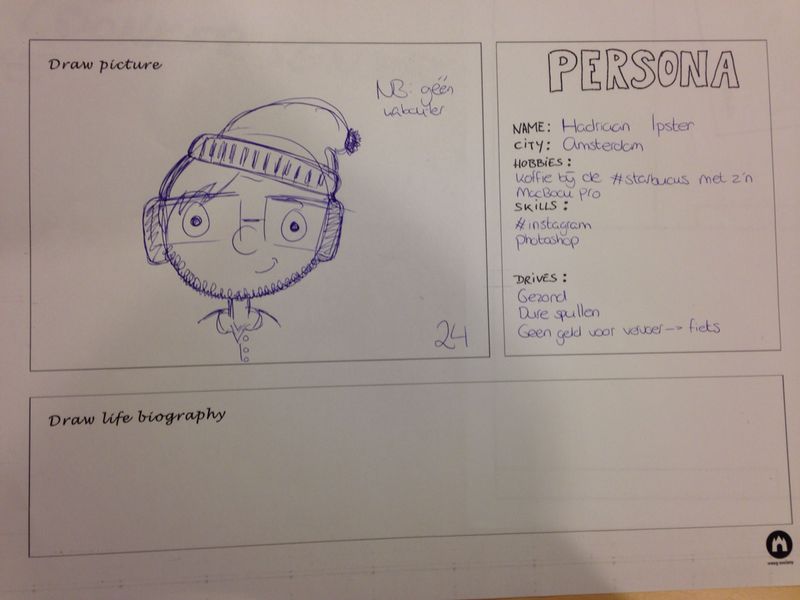 Draw picture
NB: géén
kabouter
24
PERSONA
NAME: Hadriaan Ipster
CITY: Amsterdam
HOBBIES:
Koffie bij de #starbucks met z'n
MacBook pro
SKILLS:
#instagram
photoshop
DRIVES:
Gezond
Dure spullen
Geen geld voor vervoer -> fiets
Draw life biography
waag society